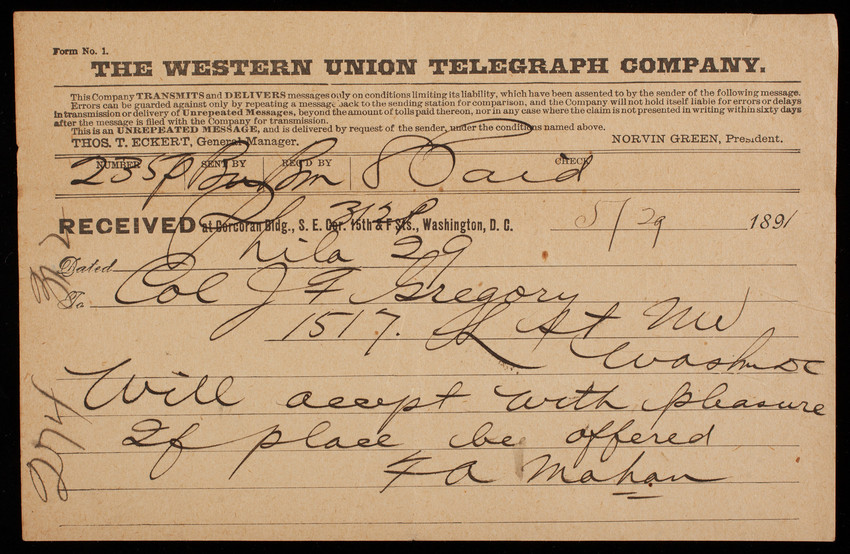 Form No. 1.
THE WESTERN UNION TELEGRAPH COMPANY.
This Company TRANSMITS and DELIVERS messages only on conditions limiting its liability, which have been assented to by the sender of the following message.
Errors can be guarded against only by repeating a message back to the sending station for comparison, and the Company will not hold itself liable for errors or delays
in transmission or delivery of Unrepeated Messages, beyond the amount of tolls paid thereon, nor in any case where the claim is not presented in writing within sixty days
after the message is filed with the Company for transmission.
This is an UNREPEATED MESSAGE, and is delivered by request of the sender, under the conditions named above.
THOS. T. ECKERT, General Manager. NORVIN GREEN, President.
NUMBER SENT BY REC'D BY CHECK
235p 8 Paid
312p
RECEIVED at Corcoran Bldg., S. E. Cor. 15th & F Sts., Washington, D. C. 5/29 1891
Dated Phila 29
To Col J F Gregory
1517. L St NW
Wash DC
Will accept with pleasure
If place be offered
F A Mahan
312
274